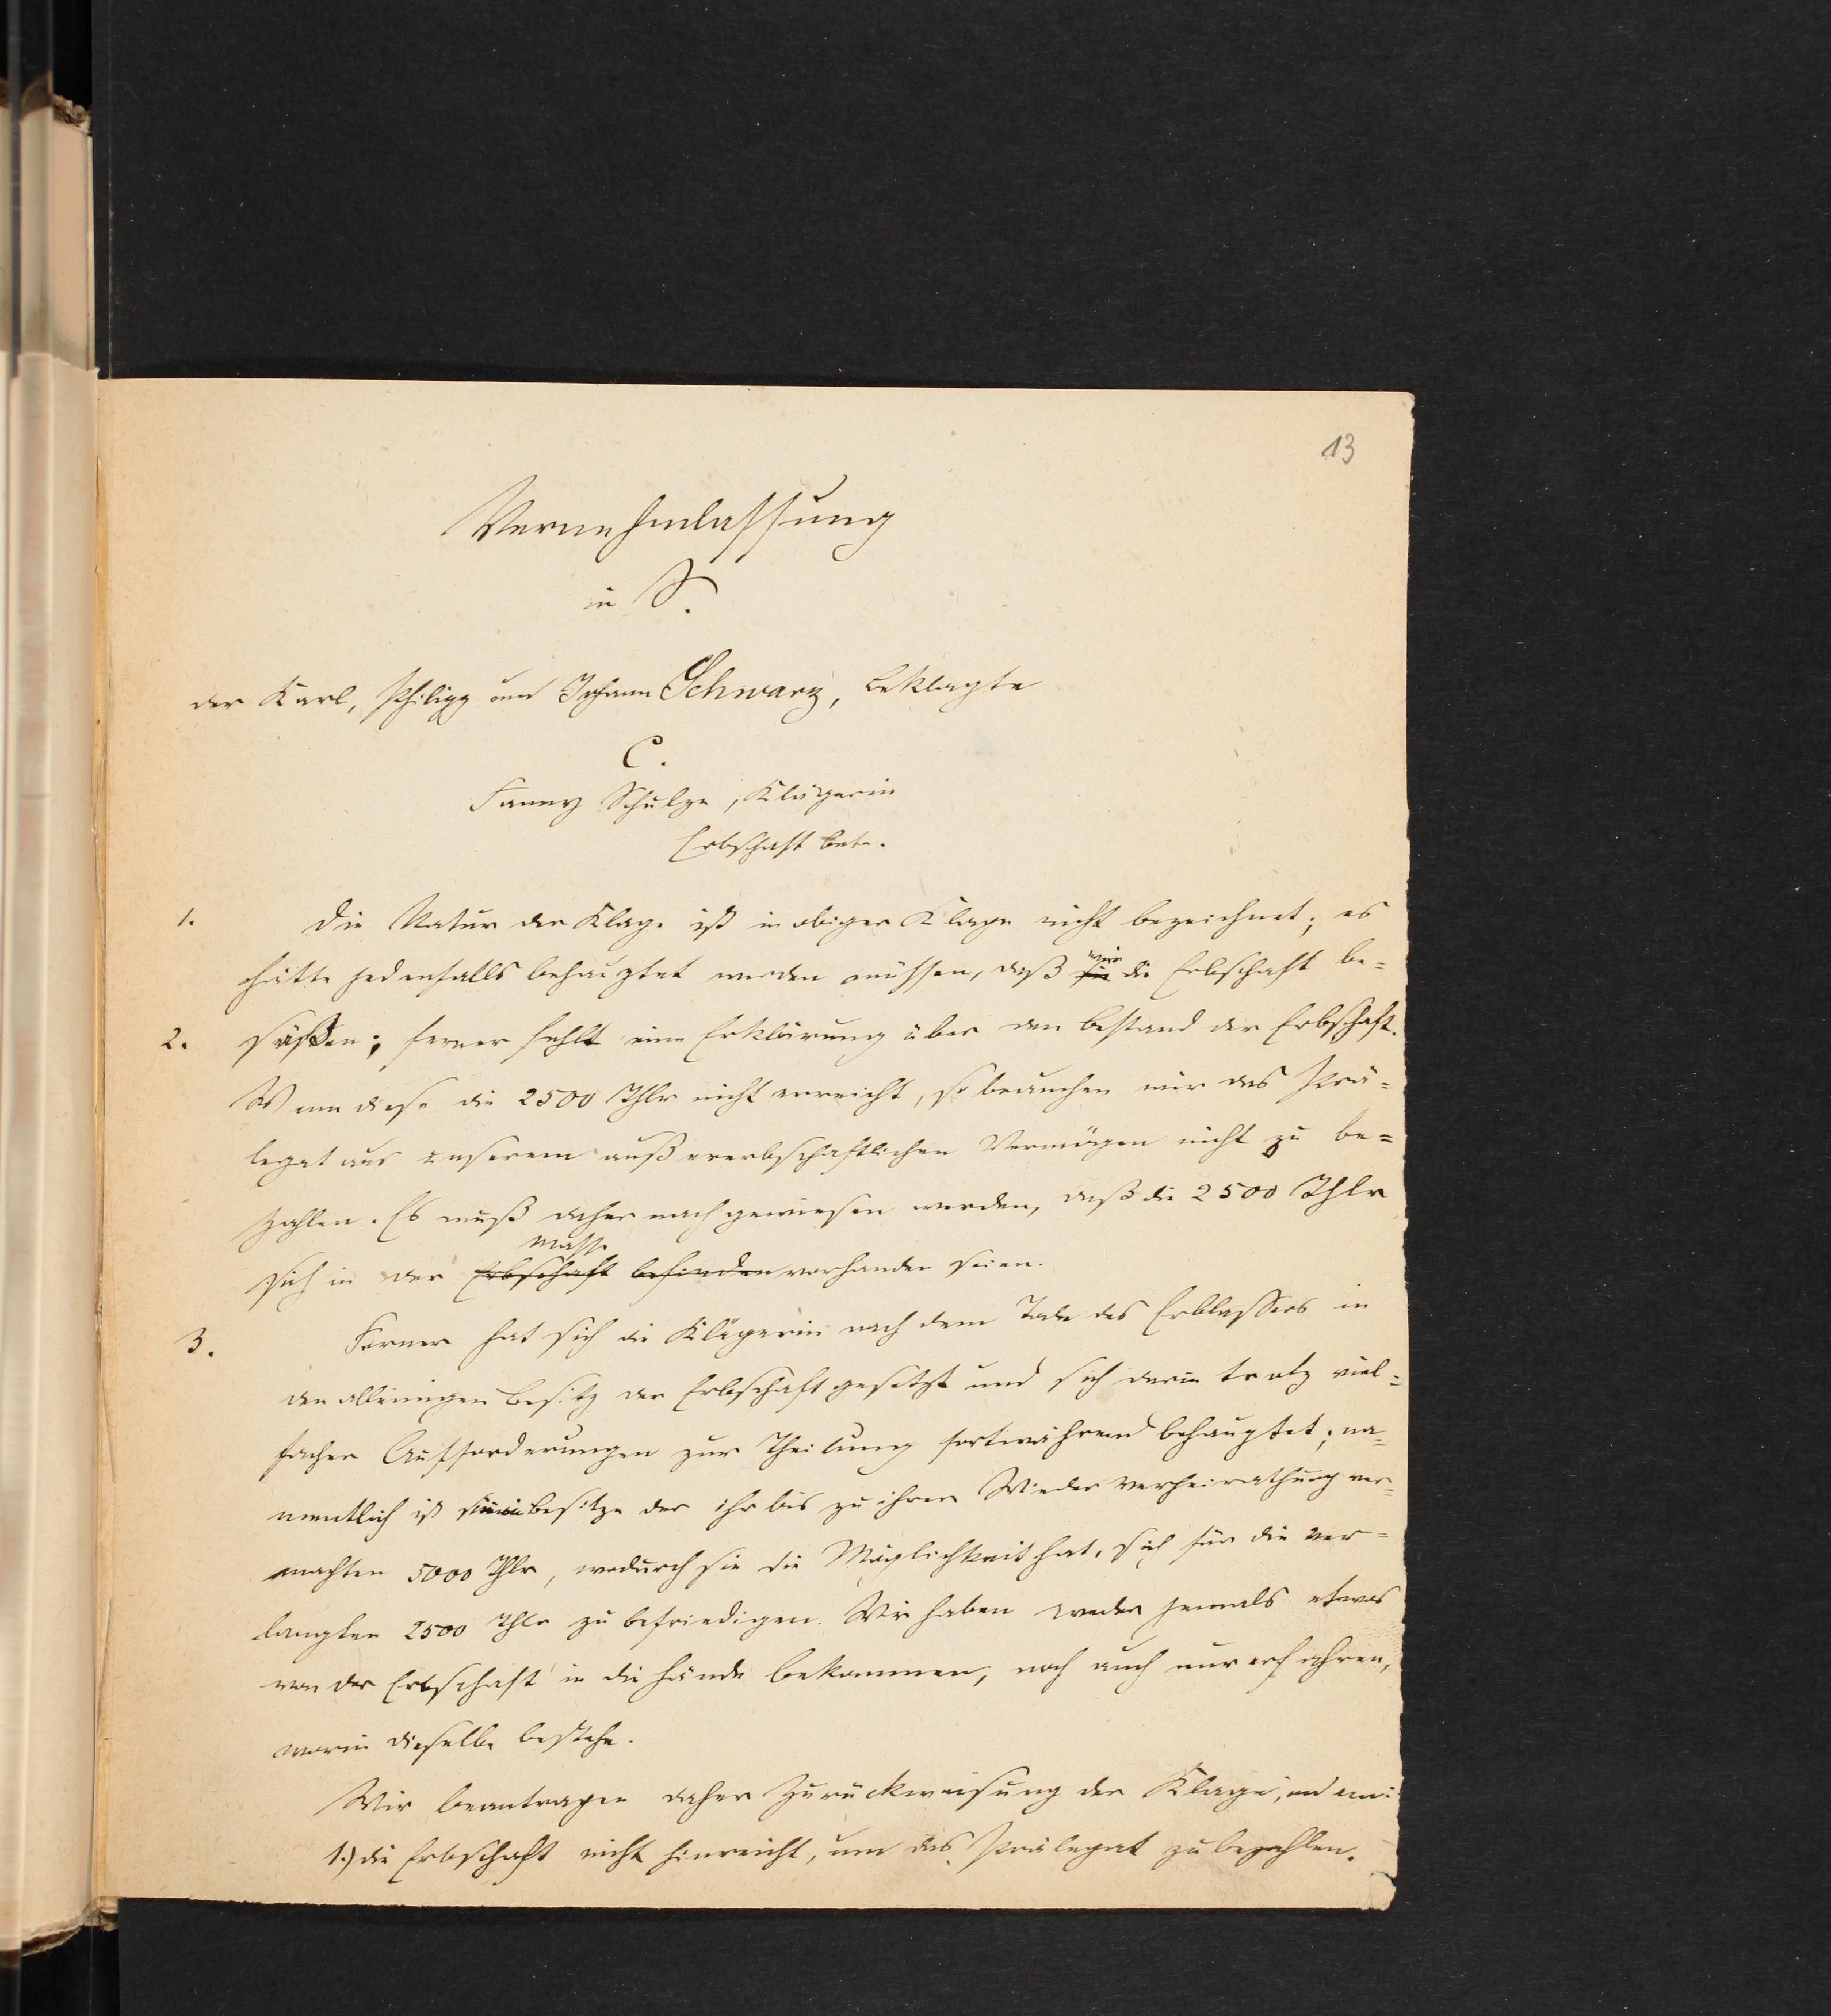 13
Vernehmlassung
in S.
der Karl, Philipp und Johann Schwarz, Beklagte
C.
Fanny Schulze, Klägerin
Erbschaft betr.
1. Die Natur der Klage ist in obiger Klage nicht bezeichnet; es
hätte jedenfalls behauptet werden müssen, daß wir die Erbschaft be=
2. säßen; ferner fehlt eine Erklärung über den Bestand der Erbschaft.
Wenn diese die 2500 Thlr nicht erreicht, so brauchen wir das Prä=
legat aus unserem außererbschaftlichen Vermögen nicht zu be=
zahlen. Es muß daher nachgewiesen werden, daß die 2500 Thlr
sich in der Erbschaft Masse befinden vorhanden seien.
3. Ferner hat sich die Klägerin nach dem Tode des Erblassers in
den alleinigen Besitz der Erbschaft gesetzt und sich darin trotz viel=
facher Aufforderungen zur Theilung fortwährend behauptet; na=
mentlich ist sie im Besitze der ihr bis zu ihrer Wiederverheirathung ver=
machten 5000 Thlr, wodurch sie die Möglichkeit hat, sich für die ver=
langten 2500 Thlr zu befriedigen. Wir haben weder jemals etwas
von der Erbschaft in die Hände bekommen, noch auch nur erfahren,
worin dieselbe bestehe.
Wir beantragen daher Zurückweisung der Klage, indem:
1.) die Erbschaft nicht hinreicht, um das Prälegat zu bezahlen.